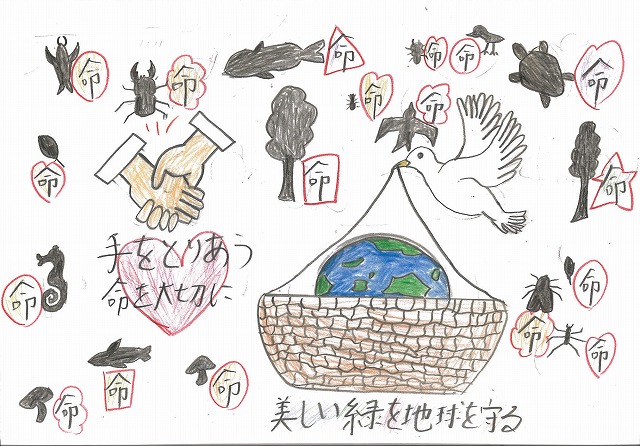 命
命
命
命
命
命
命
命
命
命
命
手をとりあう
命を大切に
命
命
命
命
命
命
命
美しい緑を地球を守る